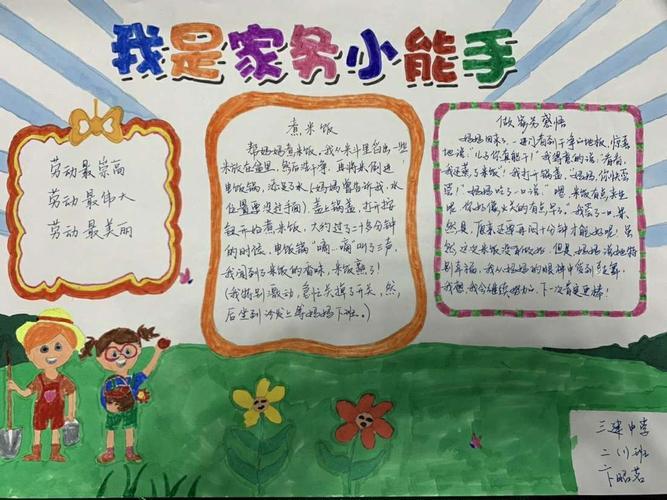 我是家务小能手
劳动最崇高
劳动最伟大
劳动最美丽
煮米饭
帮妈妈煮米饭,我从米斗里舀出一些
米放在盆里,然后洗干净,再将米倒进
电饭锅,添足了水(妈妈警告所我,水
位置要没过手面),盖上锅盖,打开按
钮开始煮米饭,大约过了二十多分钟
的时候,电饭锅“嘀…嘀”叫了三声,
我闻到了米饭的香味,米饭熟了!
(我特别激动,急忙关掉了开关,然
后坐到沙发上等妈妈下班。)
做家务感悟
妈妈回来了,一进门看到干净的地板,惊喜
地说:“儿子你真能干!”我得意的说:“看看,
我还蒸了米饭”我打开锅盖,“妈妈,你快尝
尝!”妈妈吃了一口说:“嗯,米饭有点夹生
哦,你好像火关的有点早。”我尝了一口,果
然是,原来还要再闷十分钟才能好呢!虽
然这次米饭没有做好,但是妈妈说她特
别幸福,我从妈妈的眼神中得到鼓舞,
我想,我会继续努力,下一次肯定更棒!
三建中学
二(1)班
卞昭茗